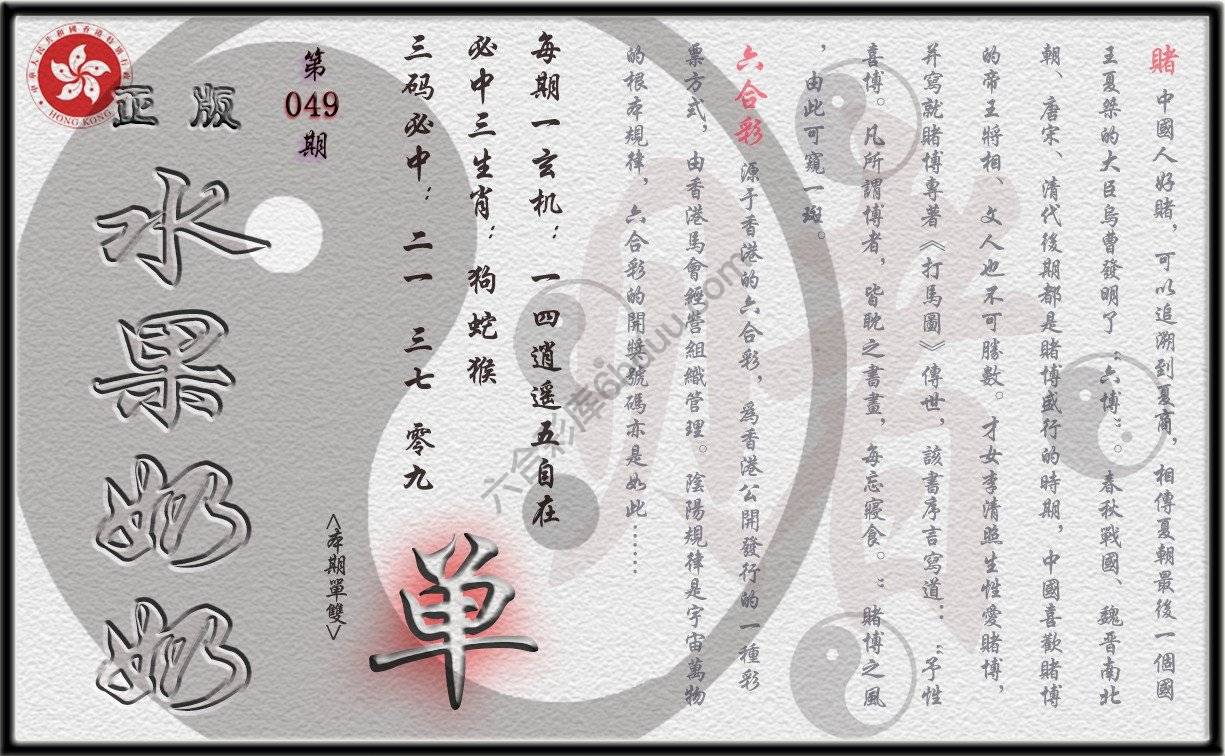 賭 中國人好賭，可以追溯到夏商，相傳夏朝最後一個國
王夏桀的大臣烏曹發明了“六博”。春秋戰國、魏晉南北
朝、唐宋、清代後期都是賭博盛行的時期，中國喜歡賭博
的帝王將相、文人也不可勝數。才女李清照生性愛賭博，
并寫就賭博專著《打馬圖》傳世，該書序言寫道：“予性
喜博。凡所謂博者，皆耽之書畫，每忘寢食。”賭博之風
，由此可窺一斑。
六合彩 源于香港的六合彩，爲香港公開發行的一種彩
票方式，由香港馬會經營組織管理。陰陽規律是宇宙萬物
的根本規律，六合彩的開獎號碼亦是如此……
每期一玄机：一四逍遥五自在
必中三生肖：狗蛇猴
三码必中：二一 三七 零九
<本期單雙>
单
第
049
期
正版
水果奶奶
HONG KONG
六合彩库6huuu.com